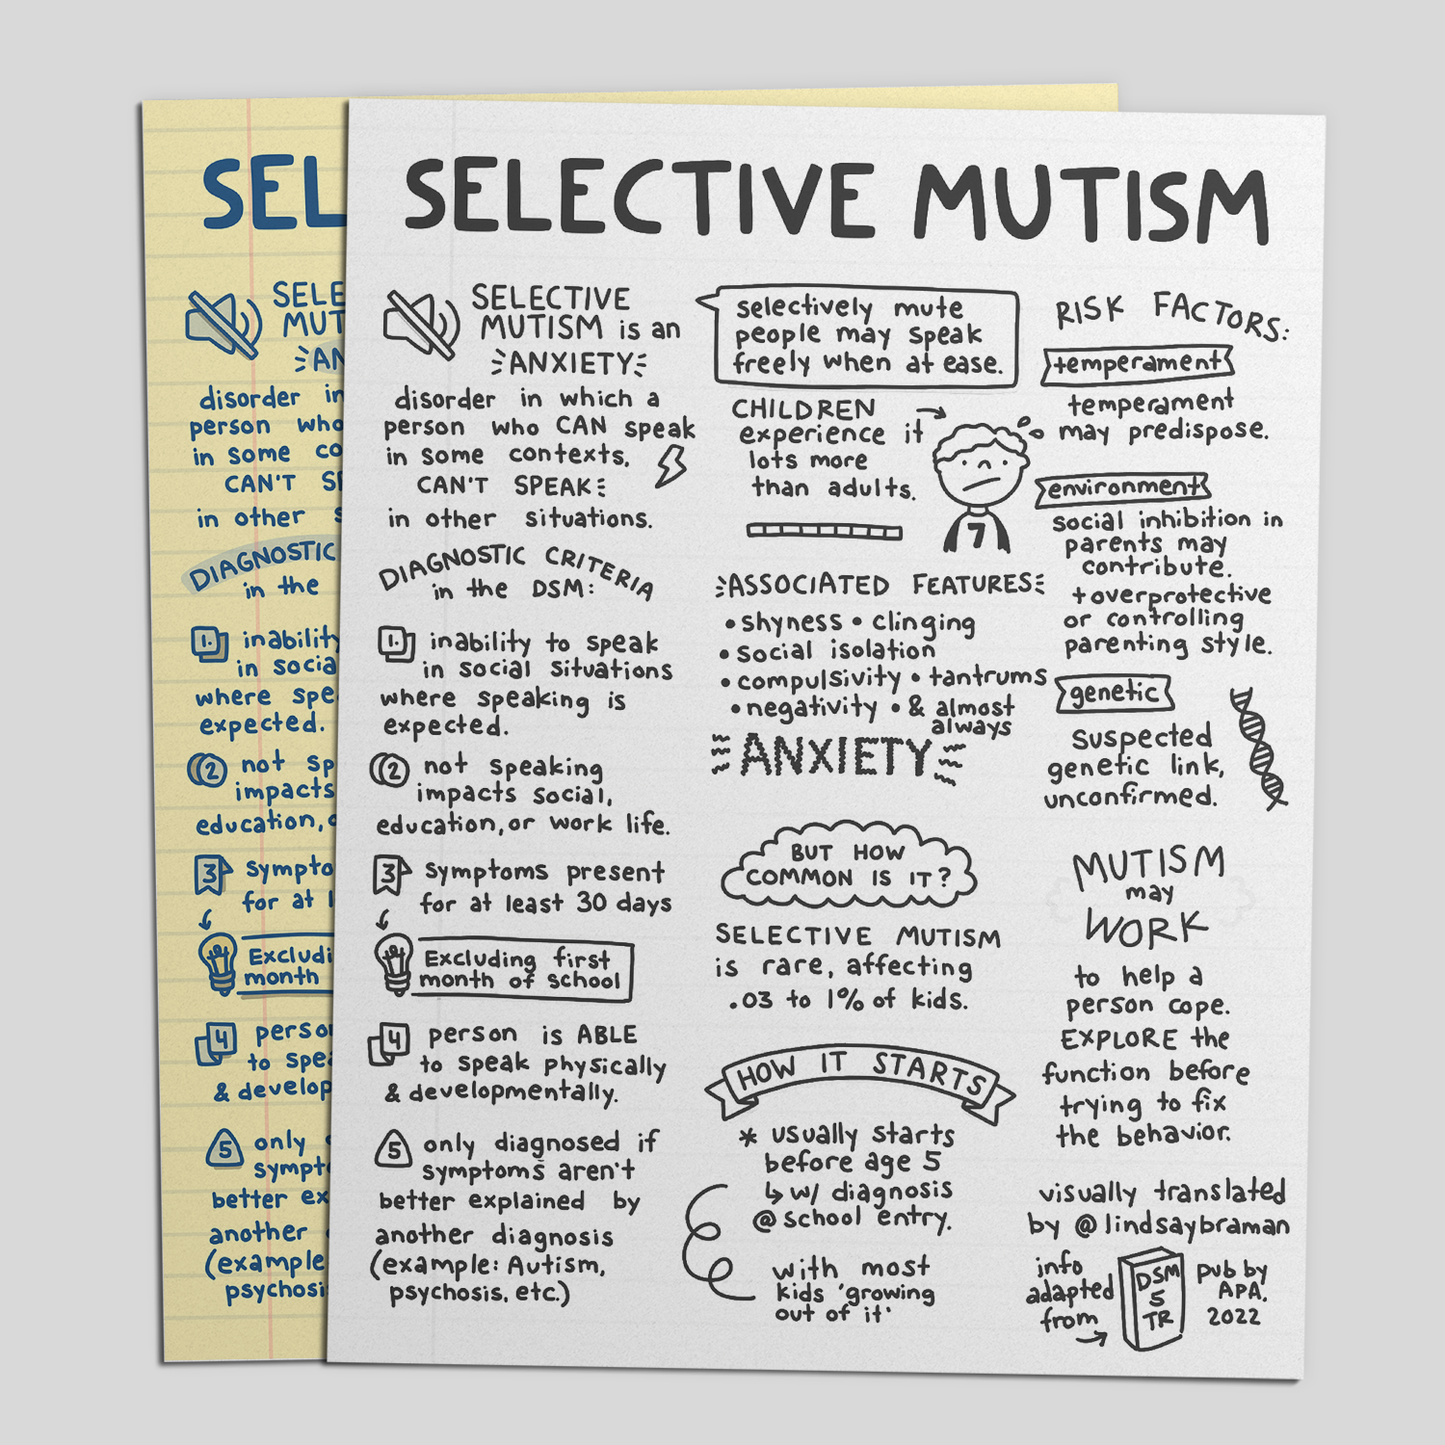 SEL
SELE
MUT
AN
disorder in
person who
in some co
CAN'T S
in other s
DIAGNOSTIC
in the
1. inability
in socia
where spe
expected.
2 not sp
impacts
education,
3 sympto
for at l
Excludi
month
4 perso
to spe
& develop
5 only
sympt
better ex
another
(example
psychosi
SELECTIVE MUTISM
SELECTIVE
MUTISM is an
ANXIETY
disorder in which a
person who CAN speak
in some contexts,
CAN'T SPEAK
in other situations.
DIAGNOSTIC CRITERIA
in the DSM:
1. inability to speak
in social situations
where speaking is
expected.
2 not speaking
impacts social,
education, or work life.
3 symptoms present
for at least 30 days
Excluding first
month of school
4 person is ABLE
to speak physically
& developmentally.
5 only diagnosed if
symptoms aren't
better explained by
another diagnosis
(example: Autism,
psychosis, etc.)
selectively mute
people may speak
freely when at ease.
CHILDREN
experience it
lots more
than adults.
7
ASSOCIATED FEATURES
• shyness • clinging
• social isolation
• compulsivity • tantrums
• negativity • & almost
always
ANXIETY
BUT HOW
COMMON IS IT?
SELECTIVE MUTISM
is rare, affecting
.03 to 1% of kids.
HOW IT STARTS
* usually starts
before age 5
↳ w/ diagnosis
@ school entry.
with most
kids 'growing
out of it'
RISK FACTORS:
temperament
temperament
may predispose.
environment
social inhibition in
parents may
contribute.
+ overprotective
or controlling
parenting style.
genetic
suspected
genetic link,
unconfirmed.
MUTISM
may
WORK
to help a
person cope.
EXPLORE the
function before
trying to fix
the behavior.
visually translated
by @lindsaybraman
info
adapted
from
DSM
5
TR
pub by
APA.
2022